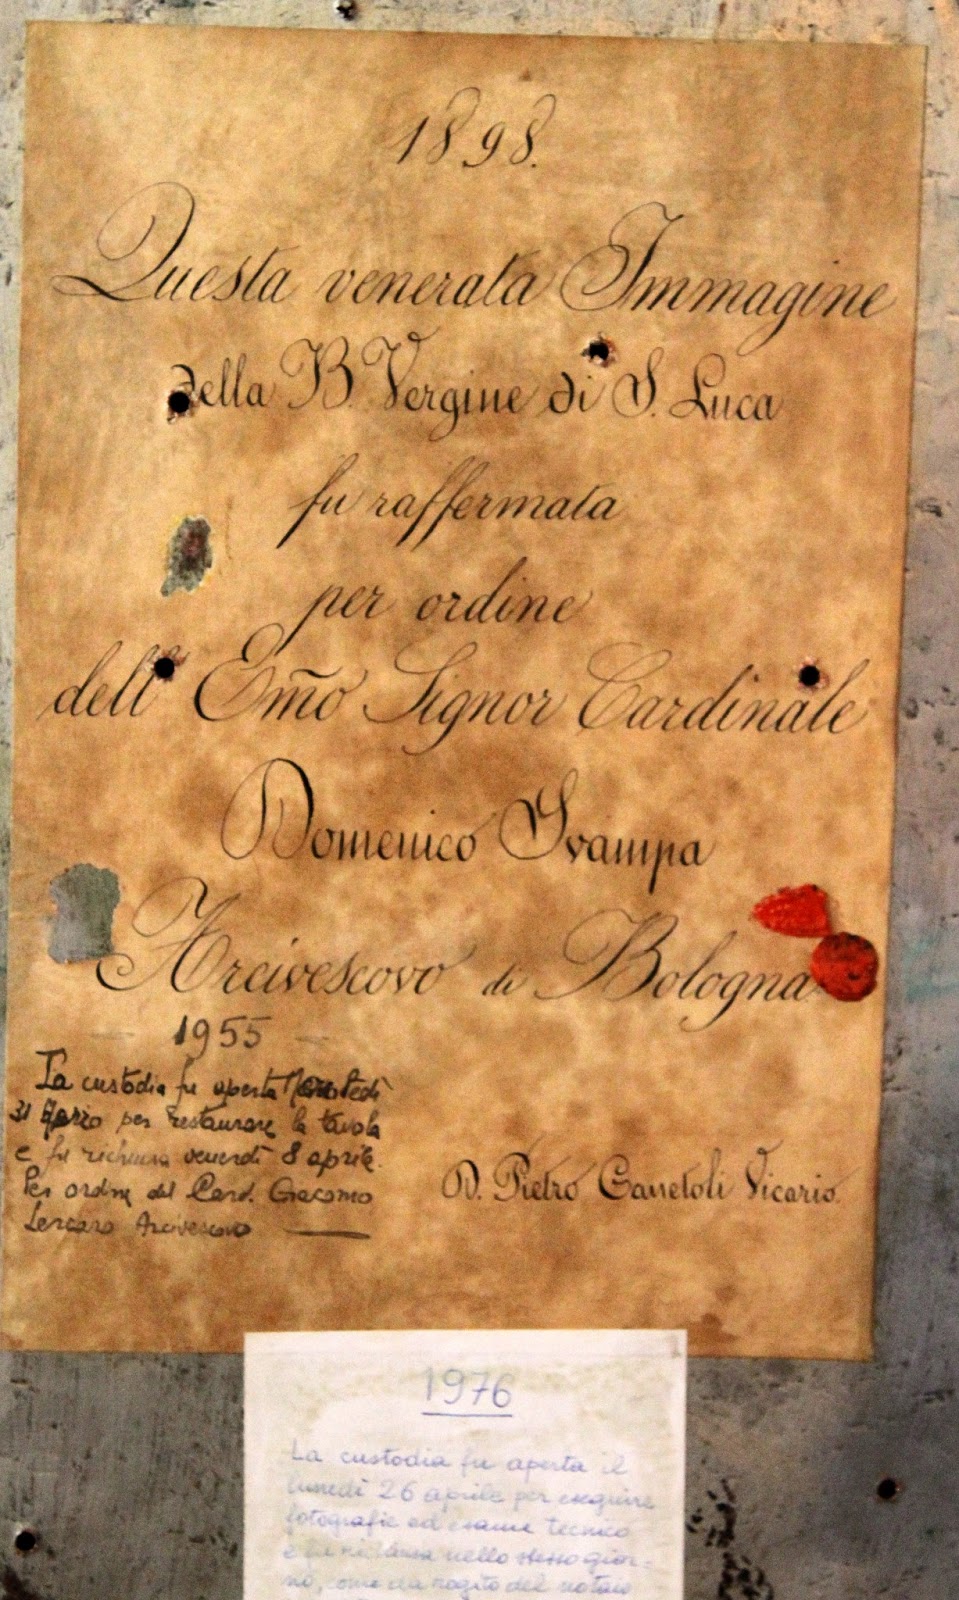 1898.
Questa venerata Immagine
della B. Vergine di S. Luca
fu raffermata
per ordine
dell' Em̃o Signor Cardinale
Domenico Svampa
Arcivescovo di Bologna
1955
La custodia fu aperta
31 Marzo per restaurare la tavola
e fu richiusa venerdì 8 aprile.
Per ordine del Card. Giacomo
Lercaro Arcivescovo
D. Pietro Canetoli Vicario.
1976
La custodia fu aperta il
lunedì 26 aprile per eseguire
fotografie ed esame tecnico
e fu richiusa nello stesso gior-
no, come da rogito del notaio